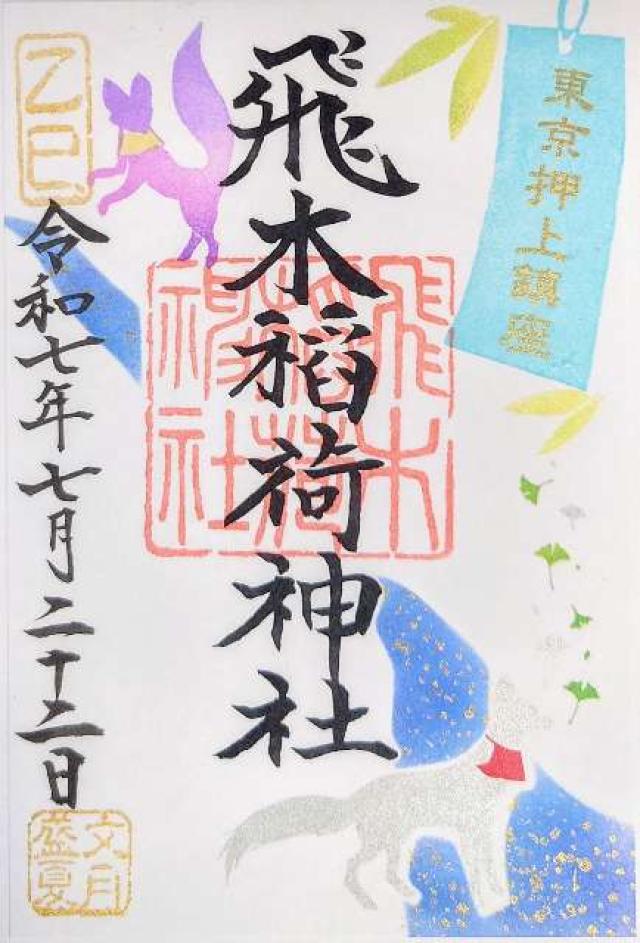 東京押上鎮座
飛木稲荷神社
飛木
稲荷
神社
乙巳
令和七年七月二十二日
文月
盛夏